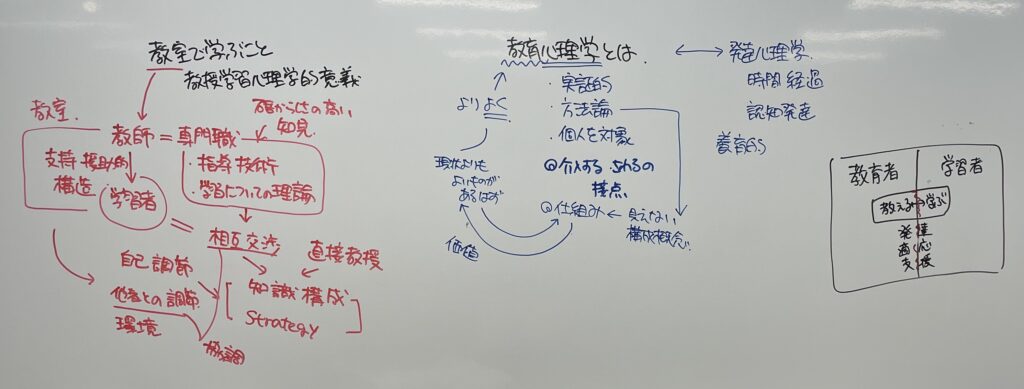 教室で学ぶこと
教授学習心理学的意義
確からしさの高い
知見
教室
教師 = 専門職
・指導技術
・学習についての理論
支持・援助的
構造
学習者
相互交渉
直接教授
自己調節
他者との調節
環境
協調
知識構成
Strategy
教育心理学とは
・実証的
・方法論
・個人を対象
介入する・されるの
接点
仕組み
見えない
構成概念
よりよく
現状よりも
よいものが
あるはず
価値
発達心理学
時間経過
認知発達
養育的
教育者 学習者
教える 学ぶ
発達
適応
支援